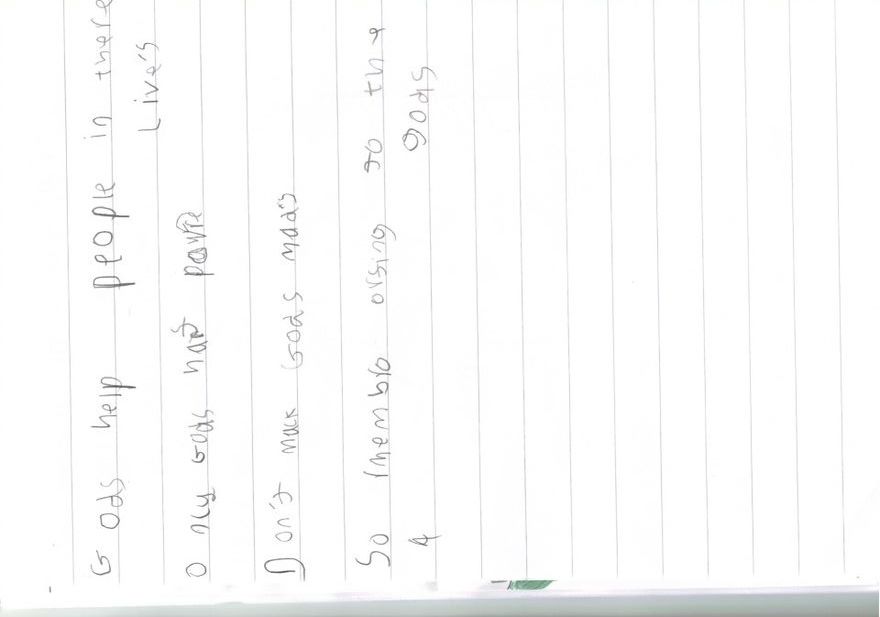 Gods help people in there
Live's
Only Gods powre
Don't mack Gods mad's
So rmembro orsing to the
gods